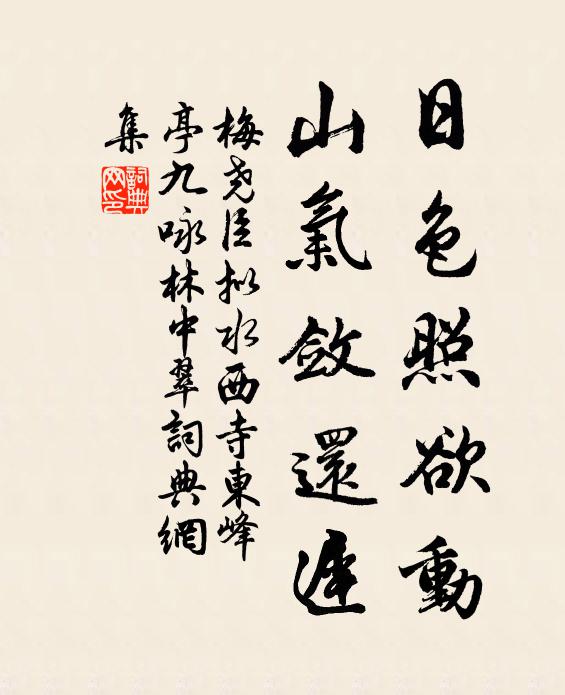 日色照欲動
山氣斂還遲
梅堯臣擬水西寺東峰
亭九咏林中翠詞典網
集
詞典網印